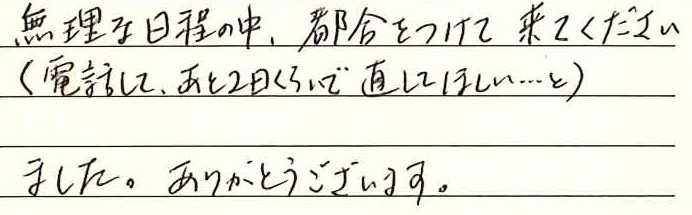 無理な日程の中、都合をつけて来てください
(電話して、あと2日くらいで直してほしい…と)
ました。ありがとうございます。